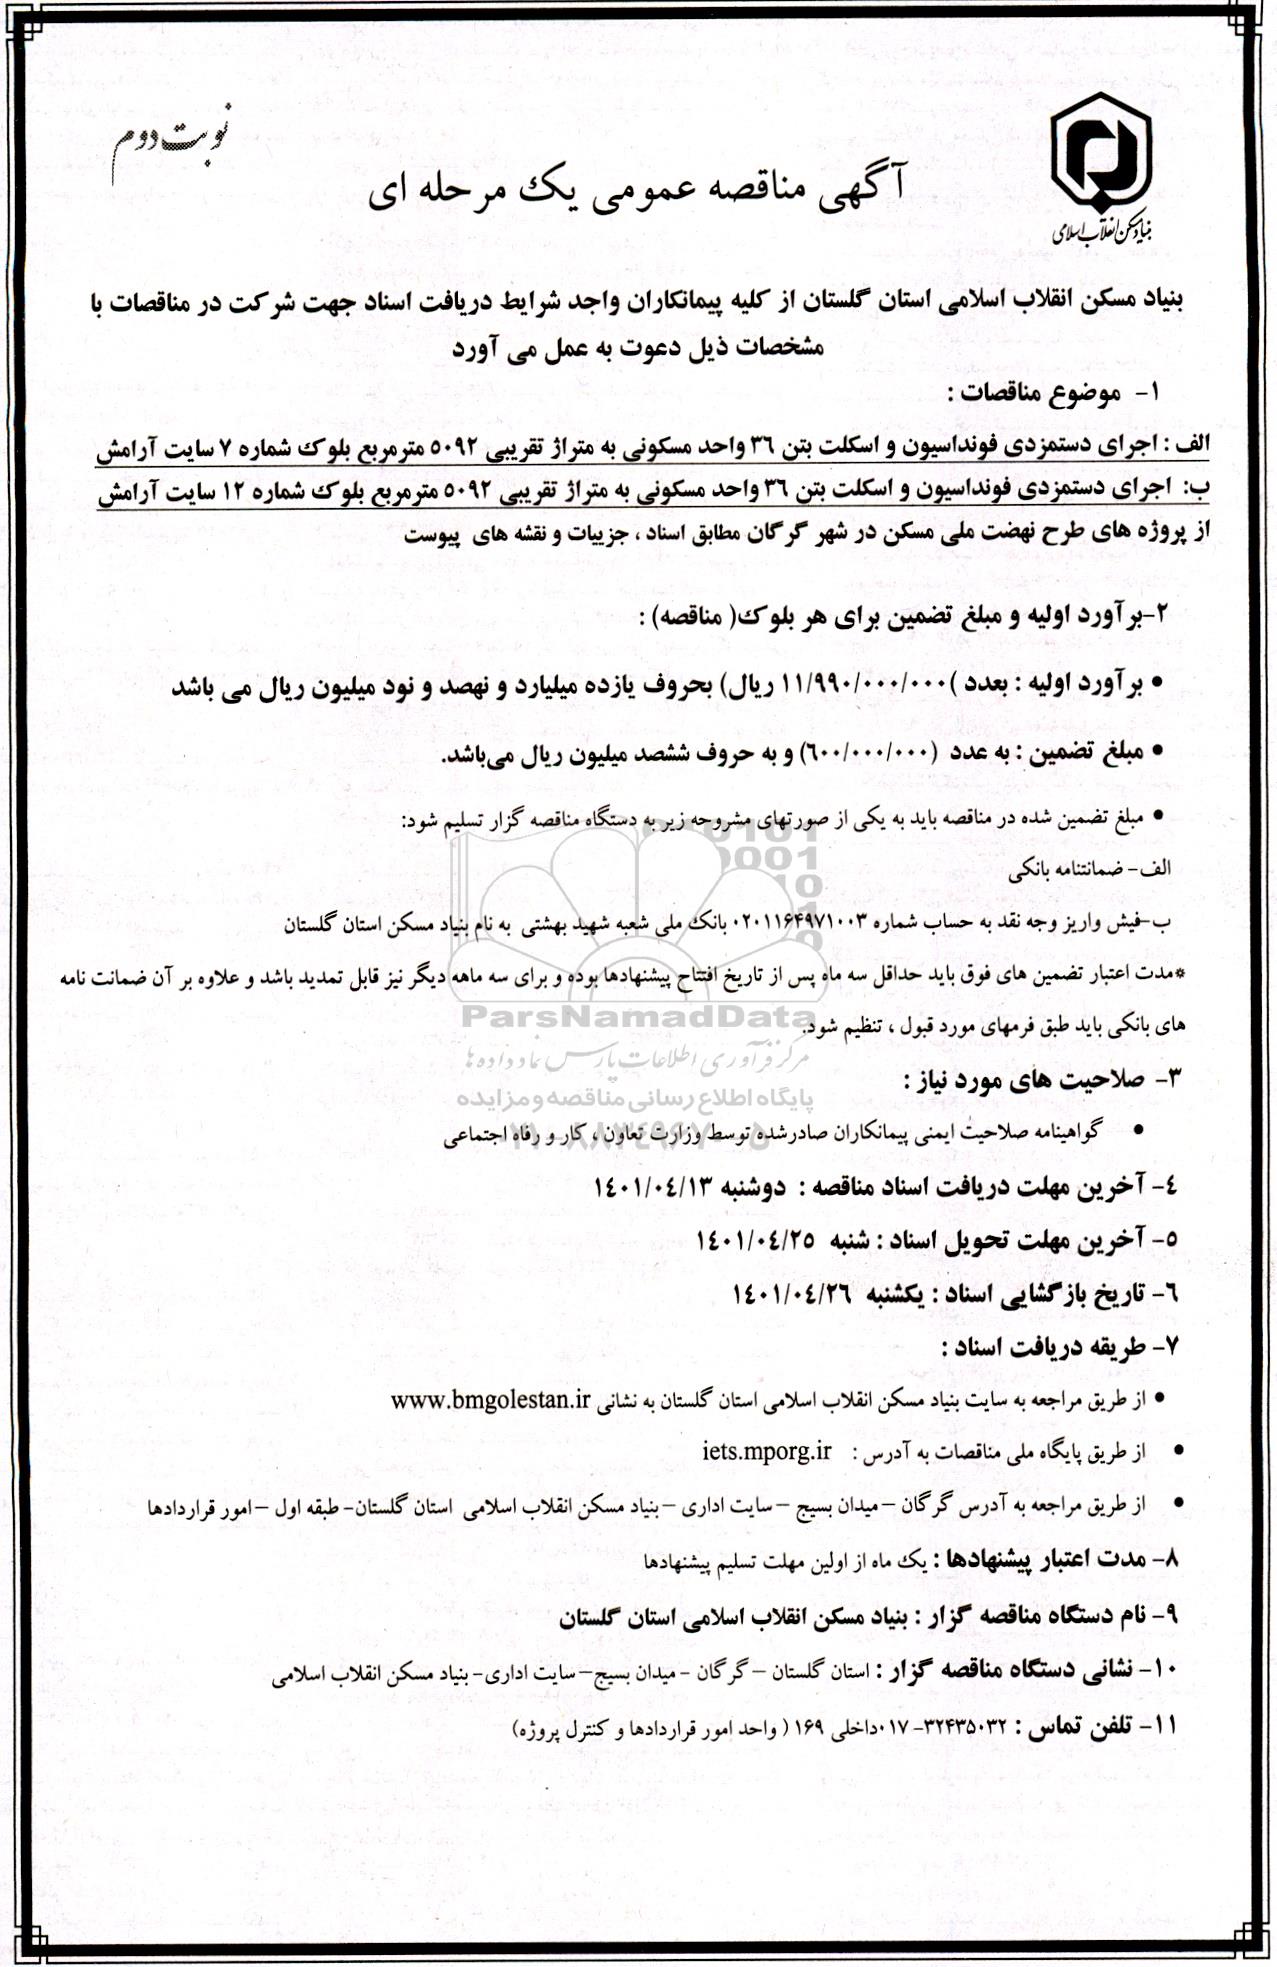 نوبت دوم
بنیاد مسکن انقلاب اسلامی
آگهی مناقصه عمومی یک مرحله ای
بنیاد مسکن انقلاب اسلامی استان گلستان از کلیه پیمانکاران واجد شرایط دریافت اسناد جهت شرکت در مناقصات با
مشخصات ذیل دعوت به عمل می آورد
۱- موضوع مناقصات :
الف : اجرای دستمزدی فونداسیون و اسکلت بتن ۳۶ واحد مسکونی به متراژ تقریبی ۵۰۹۲ مترمربع بلوک شماره ۷ سایت آرامش
ب: اجرای دستمزدی فونداسیون و اسکلت بتن ۳۶ واحد مسکونی به متراژ تقریبی ۵۰۹۲ مترمربع بلوک شماره ۱۲ سایت آرامش
از پروژه های طرح نهضت ملی مسکن در شهر گرگان مطابق اسناد ، جزییات و نقشه های پیوست
۲-برآورد اولیه و مبلغ تضمین برای هر بلوک( مناقصه) :
• برآورد اولیه : بعدد )۱۱/۹۹۰/۰۰۰/۰۰۰ ریال) بحروف یازده میلیارد و نهصد و نود میلیون ریال می باشد
• مبلغ تضمین : به عدد (۶۰۰/۰۰۰/۰۰۰) و به حروف ششصد میلیون ریال می‌باشد.
• مبلغ تضمین شده در مناقصه باید به یکی از صورتهای مشروحه زیر به دستگاه مناقصه گزار تسلیم شود:
الف- ضمانتنامه بانکی
ب-فیش واریز وجه نقد به حساب شماره ۰۲۰۱۱۶۴۹۷۱۰۰۳ بانک ملی شعبه شهید بهشتی به نام بنیاد مسکن استان گلستان
*مدت اعتبار تضمین های فوق باید حداقل سه ماه پس از تاریخ افتتاح پیشنهادها بوده و برای سه ماهه دیگر نیز قابل تمدید باشد و علاوه بر آن ضمانت نامه
های بانکی باید طبق فرمهای مورد قبول ، تنظیم شود.
ParsNamadData
مرکز فرآوری اطلاعات پارس نماد داده ها
پایگاه اطلاع رسانی مناقصه و مزایده
۳- صلاحیت های مورد نیاز :
• گواهینامه صلاحیت ایمنی پیمانکاران صادرشده توسط وزارت تعاون ، کار و رفاه اجتماعی
۴- آخرین مهلت دریافت اسناد مناقصه : دوشنبه ۱۴۰۱/۰۴/۱۳
۵- آخرین مهلت تحویل اسناد : شنبه ۱۴۰۱/۰۴/۲۵
۶- تاریخ بازگشایی اسناد : یکشنبه ۱۴۰۱/۰۴/۲۶
۷- طریقه دریافت اسناد :
• از طریق مراجعه به سایت بنیاد مسکن انقلاب اسلامی استان گلستان به نشانی www.bmgolestan.ir
• از طریق پایگاه ملی مناقصات به آدرس : iets.mporg.ir
• از طریق مراجعه به آدرس گرگان –میدان بسیج –سایت اداری –بنیاد مسکن انقلاب اسلامی استان گلستان- طبقه اول –امور قراردادها
۸- مدت اعتبار پیشنهادها : یک ماه از اولین مهلت تسلیم پیشنهادها
۹- نام دستگاه مناقصه گزار : بنیاد مسکن انقلاب اسلامی استان گلستان
۱۰- نشانی دستگاه مناقصه گزار : استان گلستان –گرگان -میدان بسیج–سایت اداری- بنیاد مسکن انقلاب اسلامی
۱۱- تلفن تماس : ۳۲۴۳۵۰۳۲-۰۱۷داخلی ۱۶۹ ( واحد امور قراردادها و کنترل پروژه)